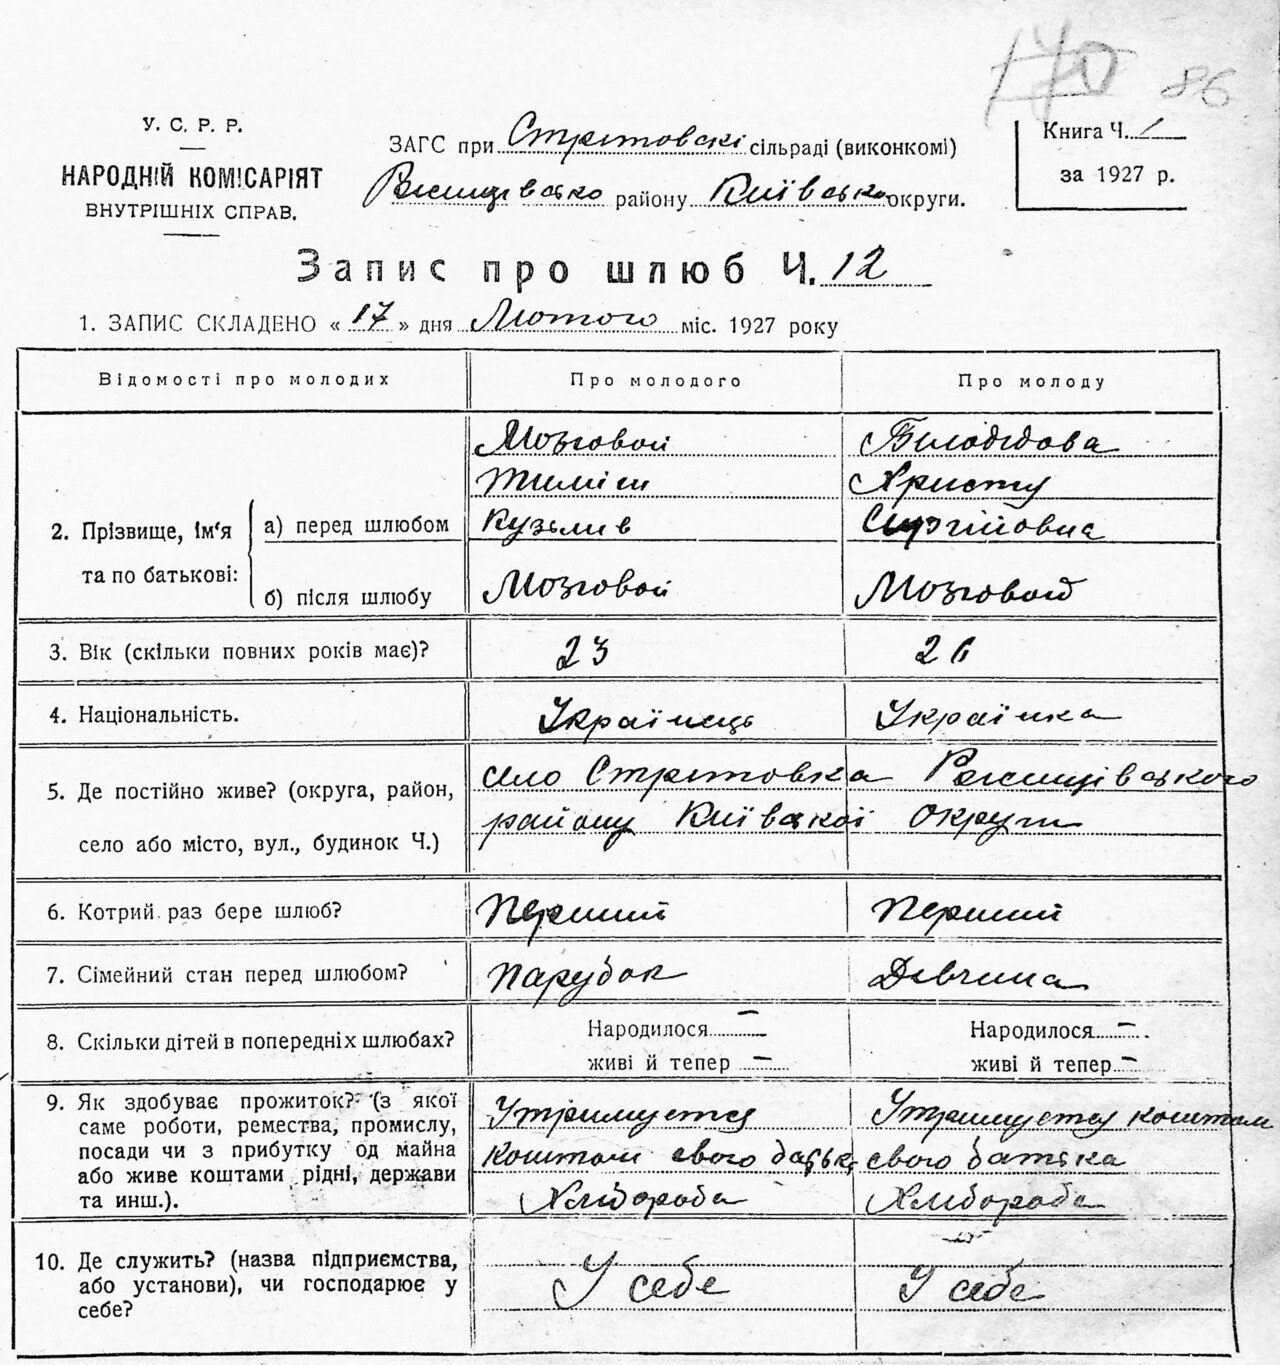 170 86
У. С. Р. Р.
НАРОДНІЙ КОМІСАРІЯТ
ВНУТРІШНІХ СПРАВ.
ЗАГС при Стрітовскі сільраді (виконкомі)
Ржищівсько району Київсько округи.
Книга Ч. 1
за 1927 р.
Запис про шлюб Ч. 12
1. ЗАПИС СКЛАДЕНО « 17 » дня Лютого міс. 1927 року
Відомості про молодих
Про молодого
Про молоду
2. Прізвище, ім'я
та по батькові:
а) перед шлюбом
Мозговой
Тиміш
Кузьмив
Білодідова
Христу
Сергійовна
б) після шлюбу
Мозговой
Мозговой
3. Вік (скільки повних років має)?
23
26
4. Національність.
Українець
Українка
5. Де постійно живе? (округа, район,
село або місто, вул., будинок Ч.)
село Стрітовка Ржищівського
району Київської округи
6. Котрий раз бере шлюб?
Перший
Перший
7. Сімейний стан перед шлюбом?
Парубок
Дівчина
8. Скільки дітей в попередніх шлюбах?
Народилося —
живі й тепер —
Народилося —
живі й тепер —
9. Як здобуває прожиток? (з якої
саме роботи, ремества, промислу,
посади чи з прибутку од майна
або живе коштами рідні, держави
та инш.).
Утримуется
коштом свого батька
Хлібороба
Утримуется коштом
свого батька
Хлібороба
10. Де служить? (назва підприємства,
або установи), чи господарює у
себе?
У себе
У себе